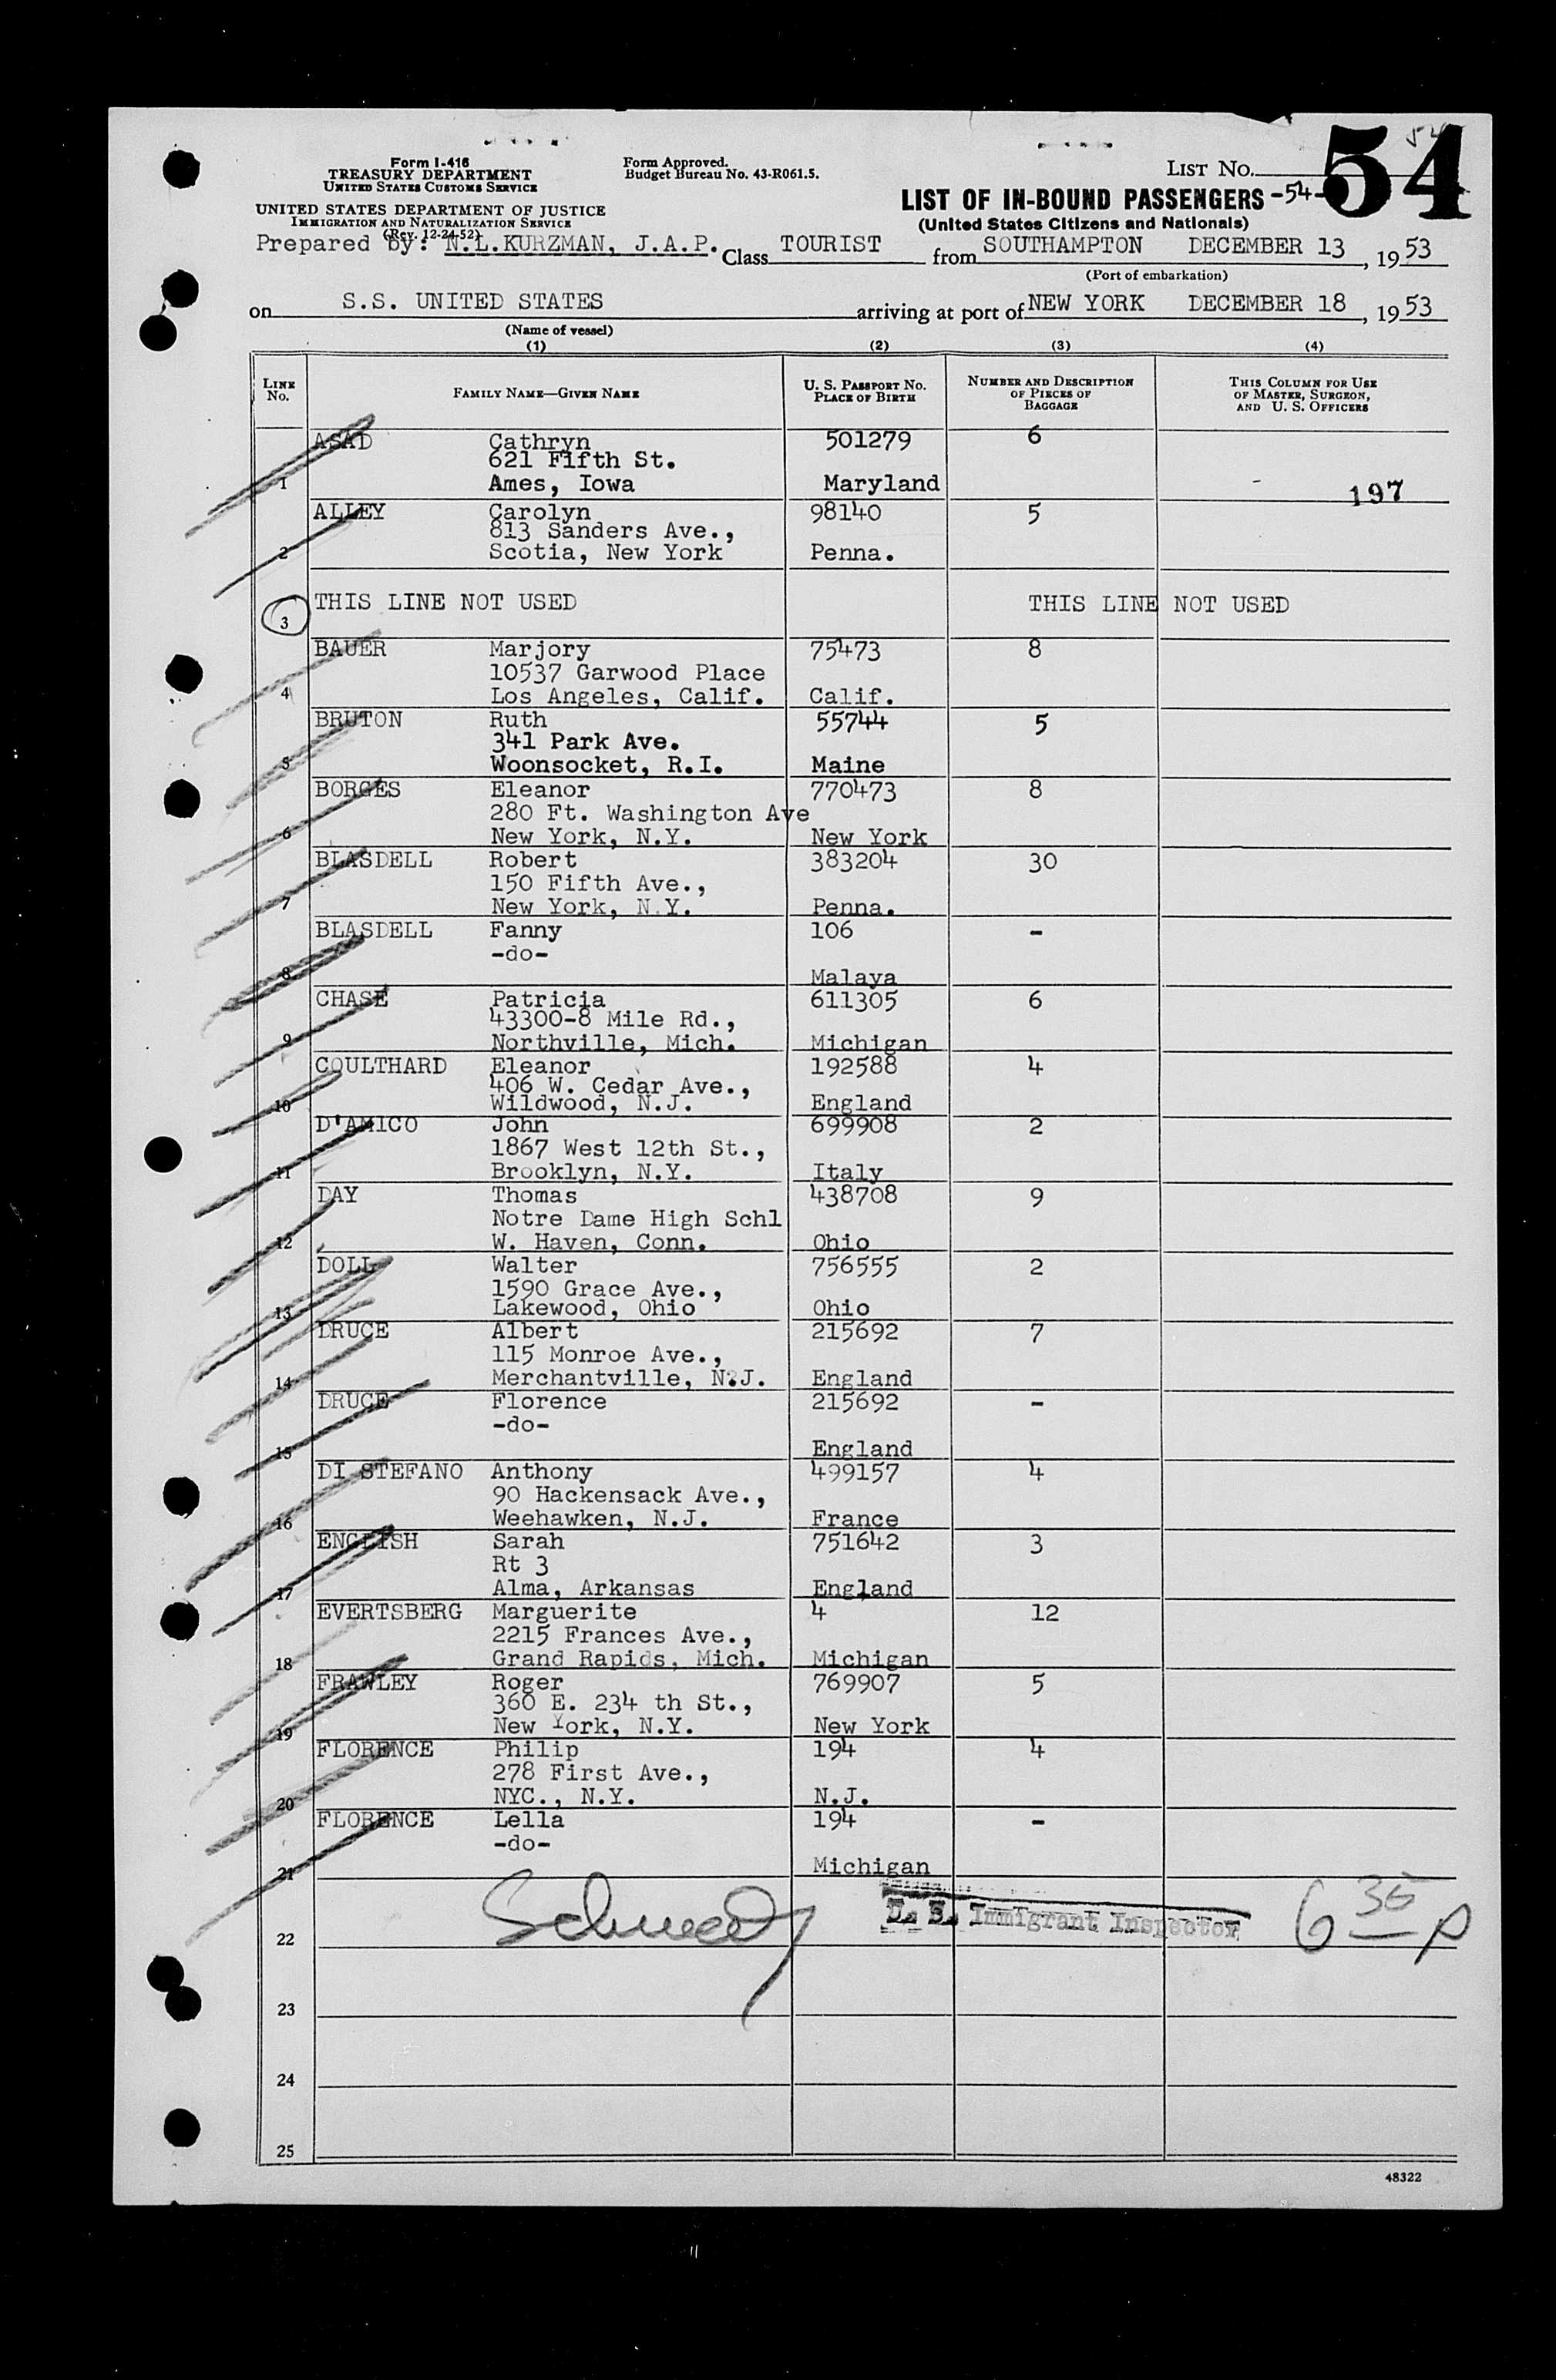 54
Form I-416
TREASURY DEPARTMENT
UNITED STATES CUSTOMS SERVICE
Form Approved.
Budget Bureau No. 43-R061.5.
LIST No.
54
UNITED STATES DEPARTMENT OF JUSTICE
IMMIGRATION AND NATURALIZATION SERVICE
(Rev. 12-24-52)
LIST OF IN-BOUND PASSENGERS -54-
(United States Citizens and Nationals)
Prepared by: N.L.KURZMAN, J.A.P. Class TOURIST from SOUTHAMPTON DECEMBER 13, 1953
(Port of embarkation)
on S.S. UNITED STATES arriving at port of NEW YORK DECEMBER 18, 1953
(Name of vessel)
(1) (2) (3) (4)
LINE No. FAMILY NAME—GIVEN NAME U. S. PASSPORT No. PLACE OF BIRTH NUMBER AND DESCRIPTION OF PIECES OF BAGGAGE THIS COLUMN FOR USE OF MASTER, SURGEON, AND U. S. OFFICERS
ASAD Cathryn 501279 6
621 Fifth St.
1 Ames, Iowa Maryland - 197
ALLEY Carolyn 98140 5
813 Sanders Ave.,
2 Scotia, New York Penna.
3 THIS LINE NOT USED THIS LINE NOT USED
BAUER Marjory 75473 8
10537 Garwood Place
4 Los Angeles, Calif. Calif.
BRUTON Ruth 55744 5
341 Park Ave.
5 Woonsocket, R.I. Maine
BORGES Eleanor 770473 8
280 Ft. Washington Ave
6 New York, N.Y. New York
BLASDELL Robert 383204 30
150 Fifth Ave.,
7 New York, N.Y. Penna.
BLASDELL Fanny 106 -
-do-
8 Malaya
CHASE Patricia 611305 6
43300-8 Mile Rd.,
9 Northville, Mich. Michigan
COULTHARD Eleanor 192588 4
406 W. Cedar Ave.,
10 Wildwood, N.J. England
D'AMICO John 699908 2
1867 West 12th St.,
11 Brooklyn, N.Y. Italy
DAY Thomas 438708 9
Notre Dame High Schl
12 W. Haven, Conn. Ohio
DOLL Walter 756555 2
1590 Grace Ave.,
13 Lakewood, Ohio Ohio
DRUCE Albert 215692 7
115 Monroe Ave.,
14 Merchantville, N.J. England
DRUCE Florence 215692 -
-do-
15 England
DI STEFANO Anthony 499157 4
90 Hackensack Ave.,
16 Weehawken, N.J. France
ENGLISH Sarah 751642 3
Rt 3
17 Alma, Arkansas England
EVERTSBERG Marguerite 4 12
2215 Frances Ave.,
18 Grand Rapids, Mich. Michigan
FRAWLEY Roger 769907 5
360 E. 234 th St.,
19 New York, N.Y. New York
FLORENCE Philip 194 4
278 First Ave.,
20 NYC., N.Y. N.J.
FLORENCE Lella 194 -
-do-
21 Michigan
U. S. Immigrant Inspector 6 35 p
22
23
24
25
48322